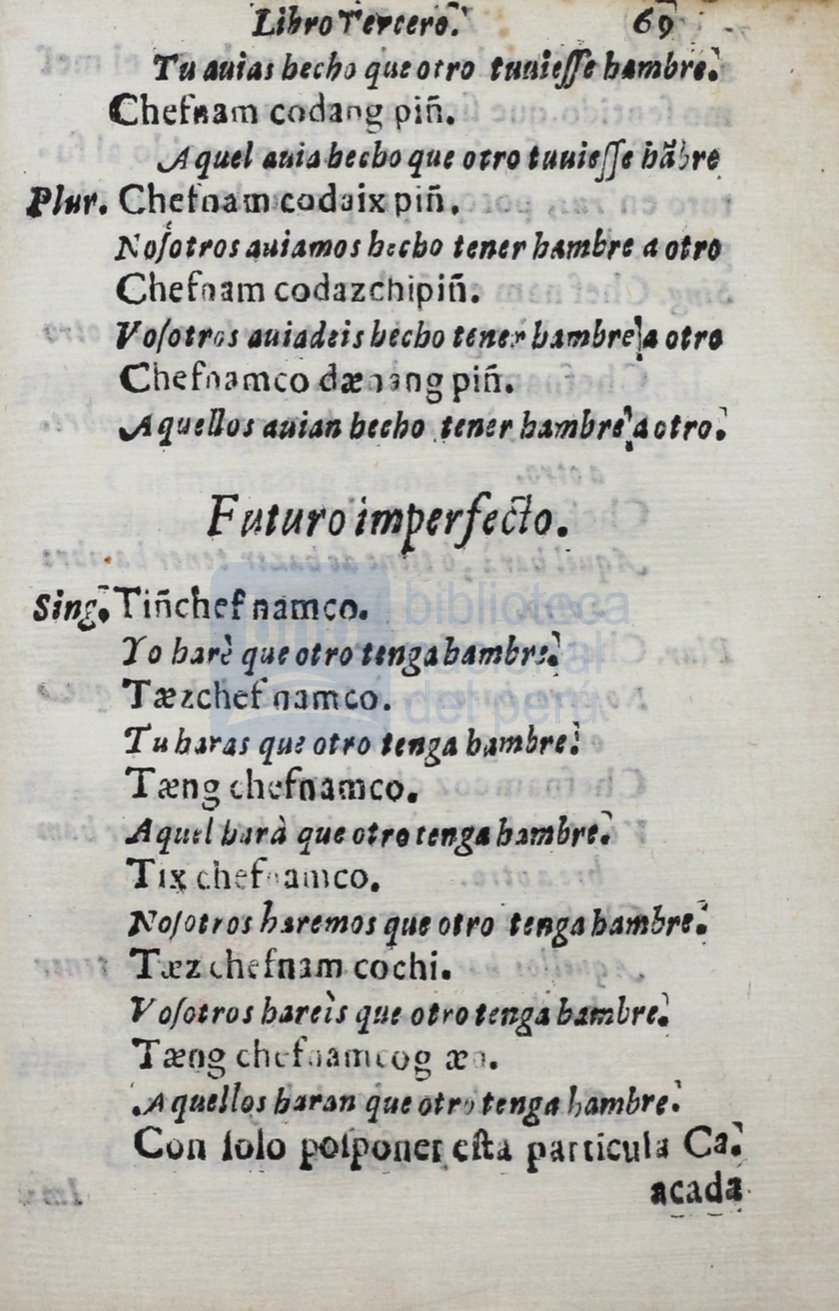 Libro Tercero. 69
Tu auias hecho que otro tuuiesſe hambre.
Chefnam codang piñ.
Aquel auia hecho que otro tuuiesſe hãbre
Plur. Chefnam codaix piñ.
Noſotros auiamos hecho tener hambre a otro
Chefnam codazchipiñ.
Voſotros auiadeis hecho tener hambre a otro
Chefnamco dænang piñ.
Aquellos auian hecho tener hambre a otro.
Futuro imperfecto.
Sing. Tiñchef namco.
Yo harè que otro tenga hambre.
Tæzchef namco.
Tu haras que otro tenga hambre.
Tæng chefnamco.
Aquel harà que otro tenga hambre.
Tix chefnamco.
Noſotros haremos que otro tenga hambre.
Tæz chefnam cochi.
Voſotros hareìs que otro tenga hambre.
Tæng chefnamcog æn.
Aquellos haran que otro tenga hambre.
Con ſolo poſponer eſta particula Ca.
acada
biblioteca
nacional
del perú